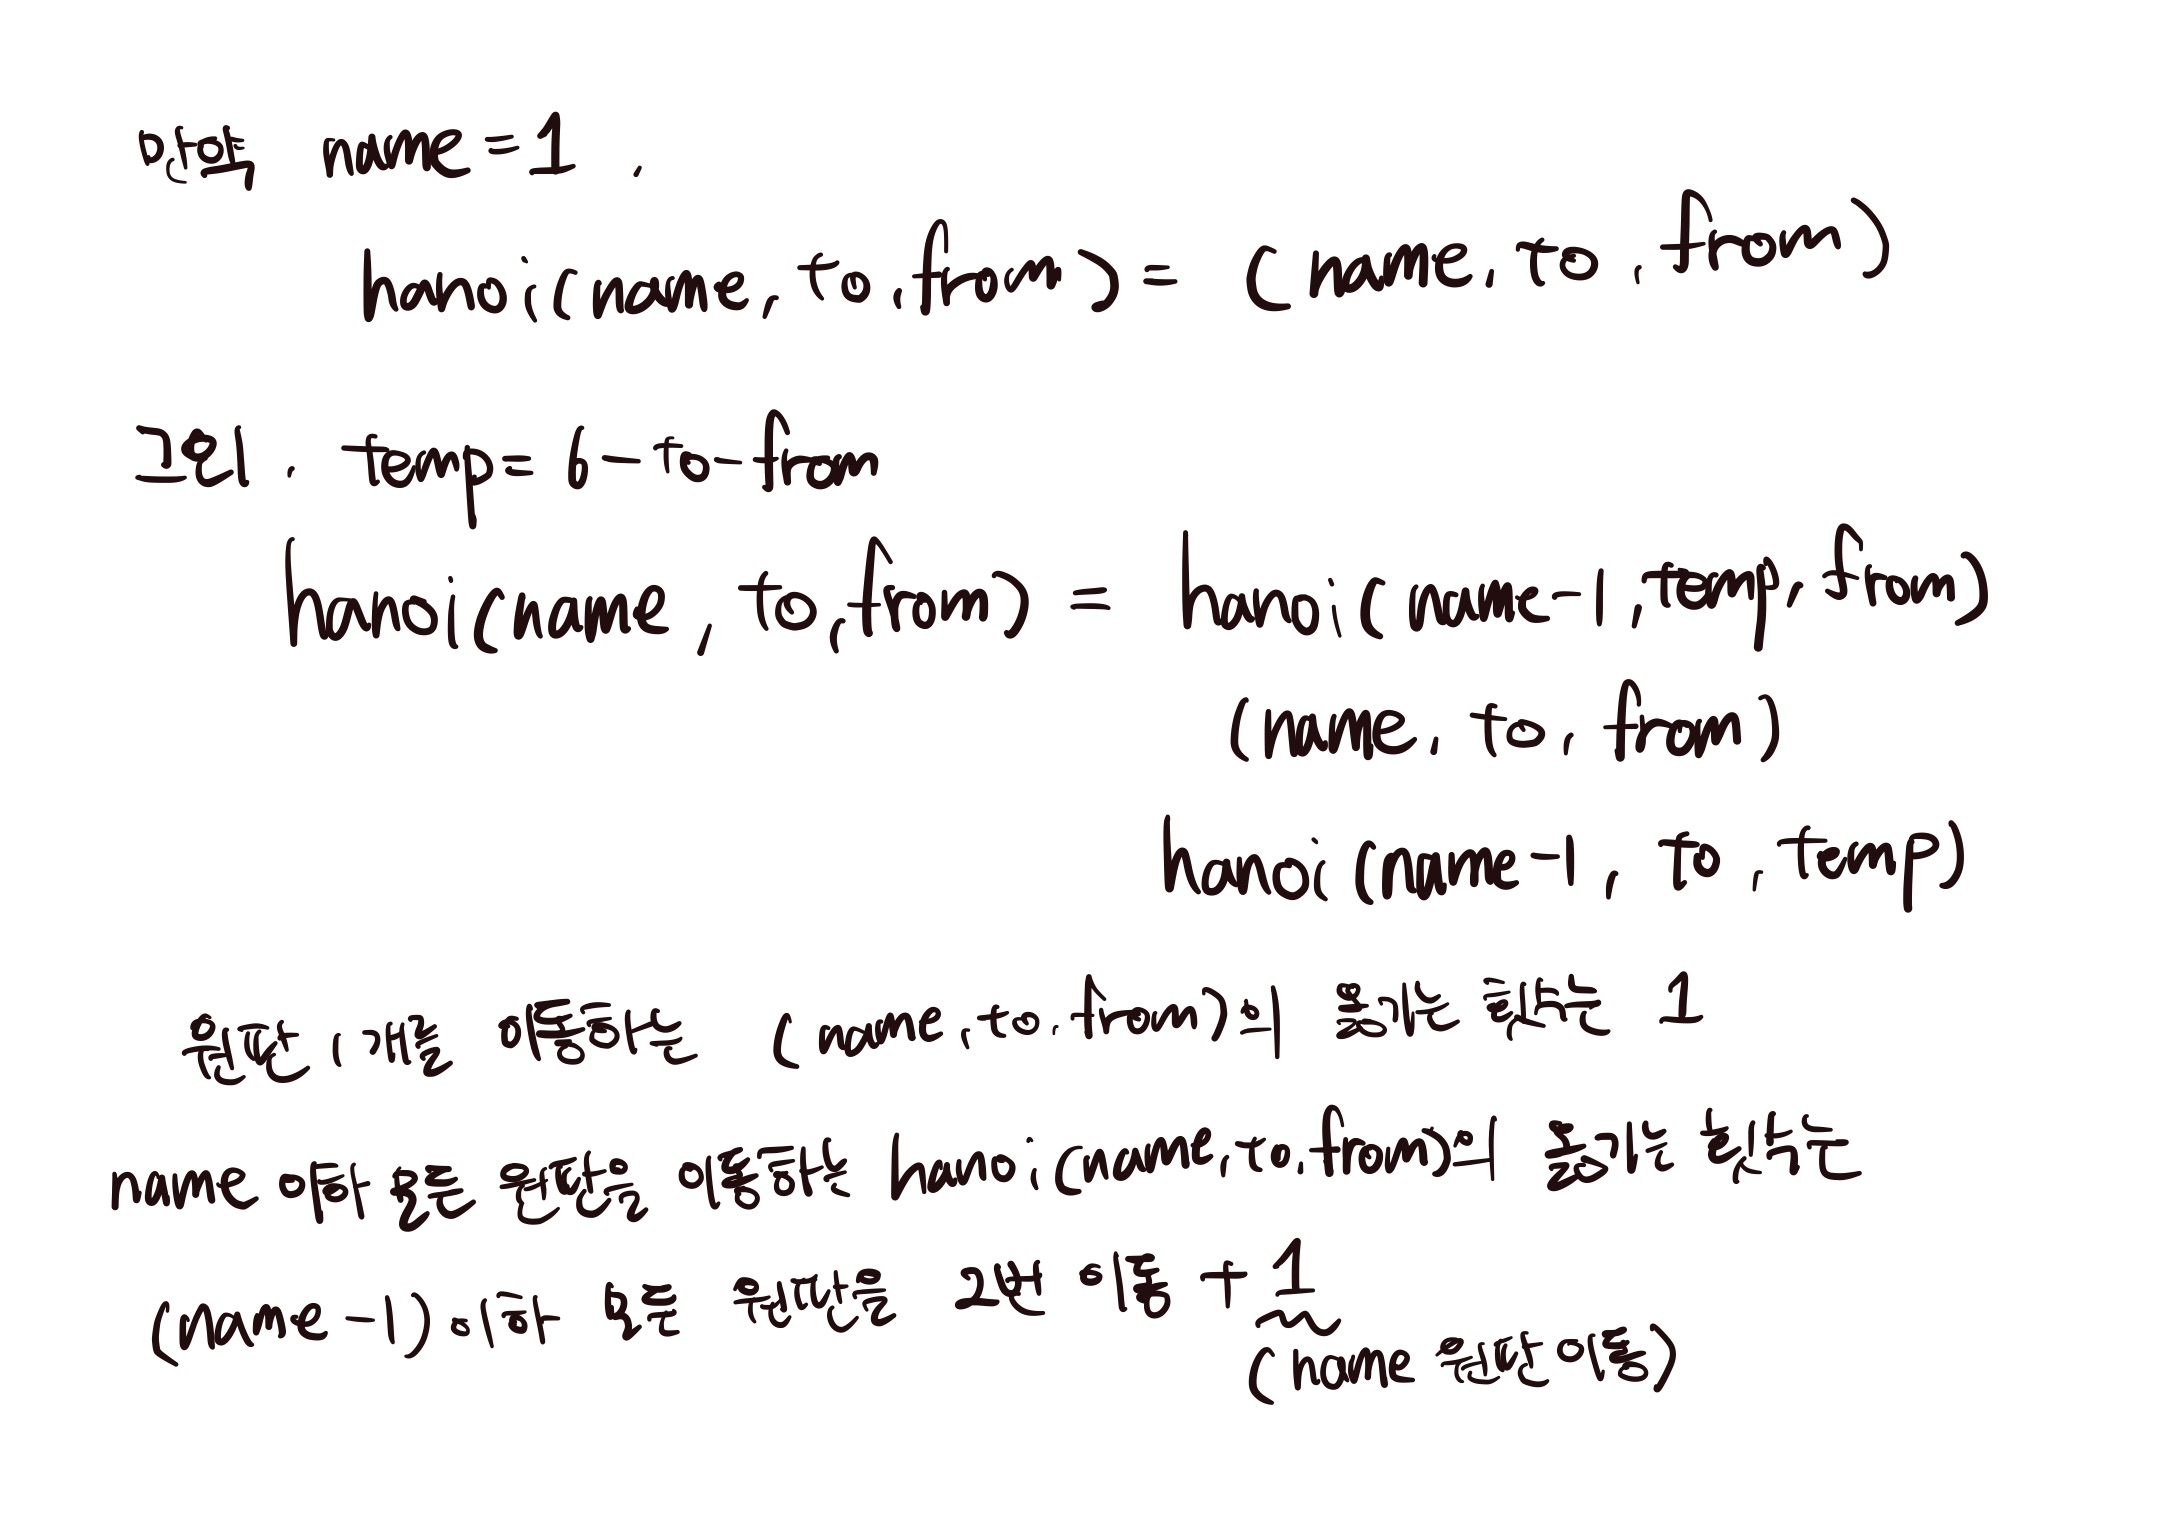 만약 name=1,
hanoi(name, to, from) = (name, to, from)
그외, temp= 6-to-from
hanoi(name, to, from) = hanoi(name-1, temp, from)
(name, to, from)
hanoi(name-1, to, temp)
원판 1개를 이동하는 (name, to, from)의 옮기는 횟수는 1
name 이하 모든 원판을 이동하는 hanoi(name, to, from)의 옮기는 횟수는
(name-1)이하 모든 원판을 2번 이동 + 1
(name 원판 이동)